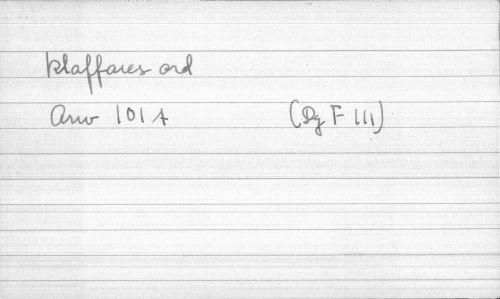 klaffares ord
Arw 101 A (Dg F III)